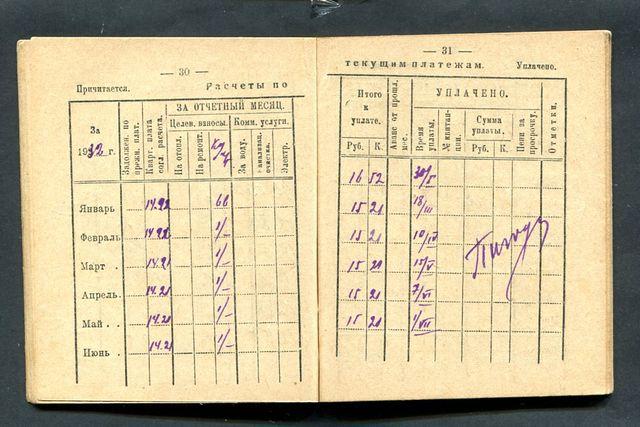 — 30 —
Причитается. Расчеты по
За 1932 г.
Задолжен. по прежн. плат.
Кварт. плата согл. расчета.
ЗА ОТЧЕТНЫЙ МЕСЯЦ.
Целев. взносы. Комм. услуги.
На отопл.
На ремонт.
За воду.
Электр.
Январь 14.92 60
Февраль 14.22 1/—
Март 14.21 1/—
Апрель 14.21 1/—
Май 14.21 1/—
Июнь 14.21 1/—
— 31 —
текущим платежам. Уплачено.
Итого к уплате.
Руб. К.
Аванс от прошл. мес.
УПЛАЧЕНО.
Время уплаты.
№ квитанции.
Сумма уплаты.
Руб. К.
Пени за просрочку.
Отметки.
16 52 30/I
15 21 18/III
15 21 10/IV
15 21 15/V
15 21 7/VI
15 21 1/VII